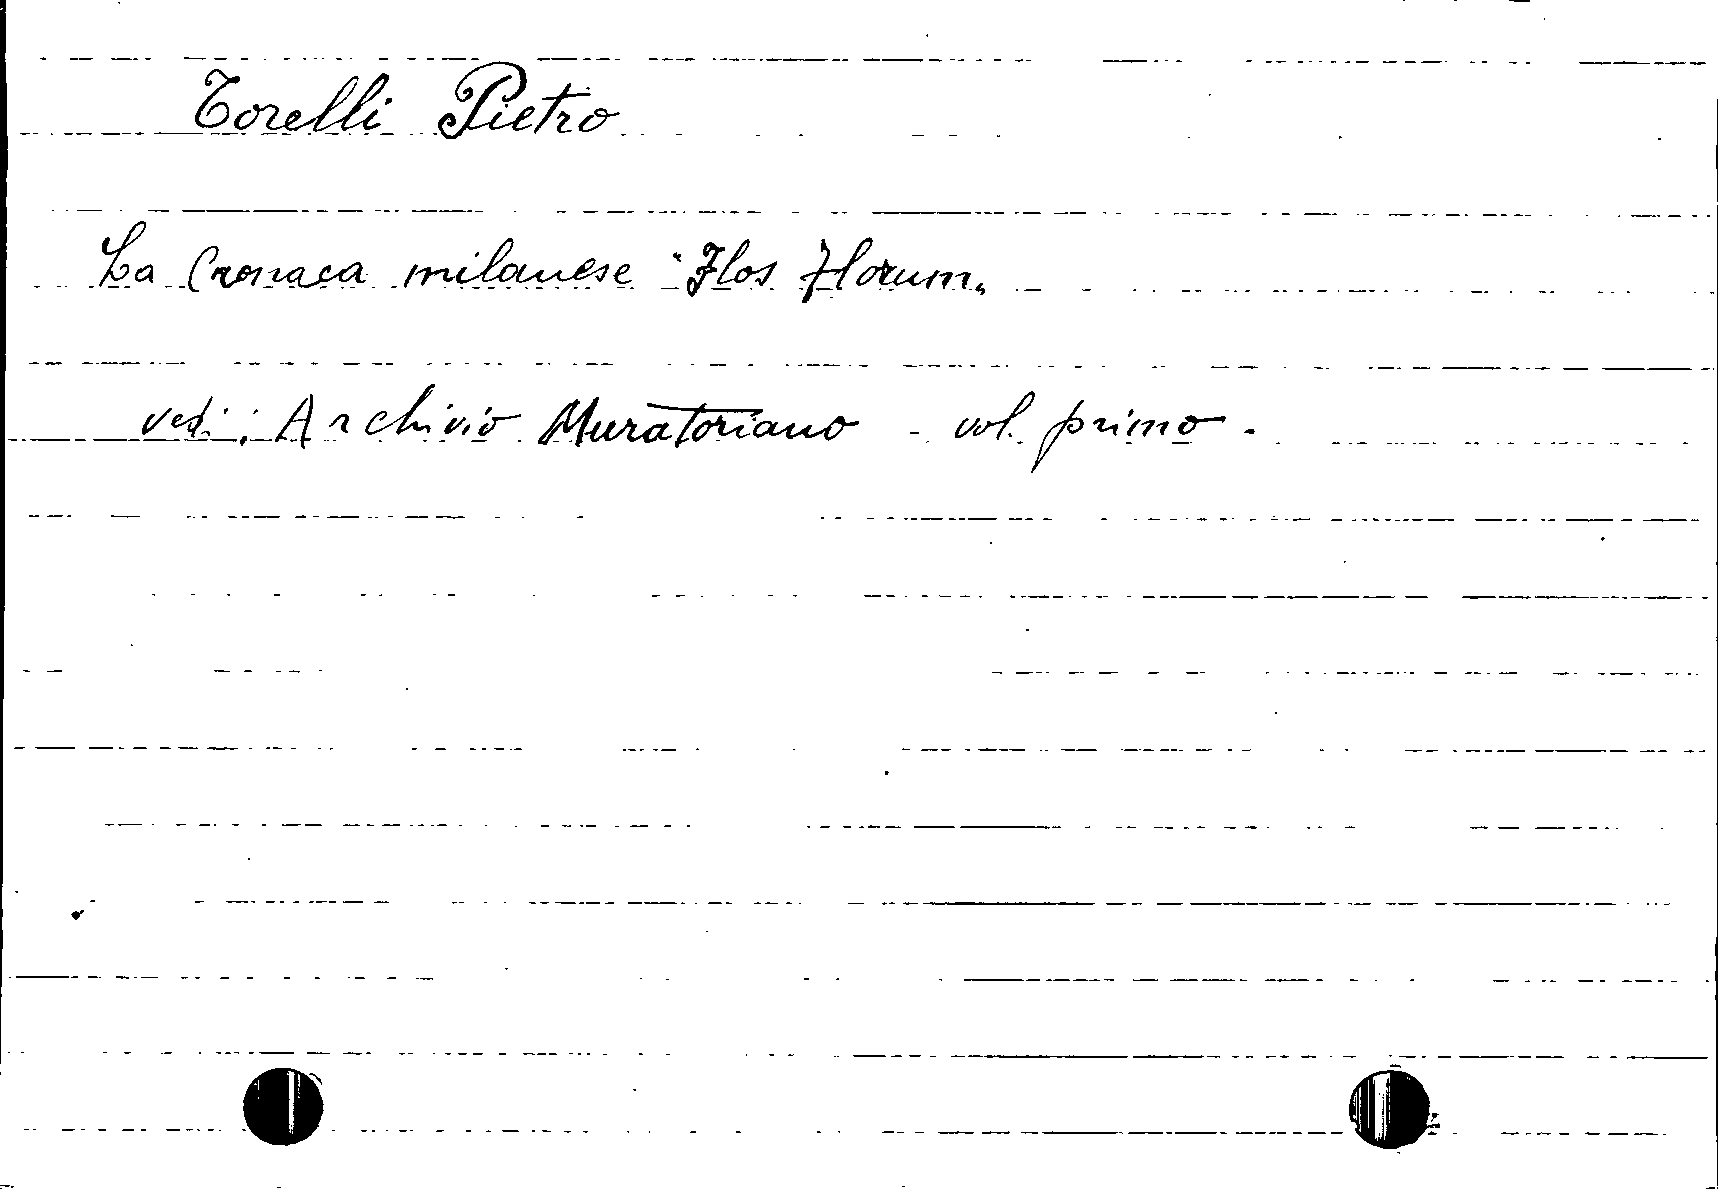 Torelli Pietro
La Cronaca milanese "Flos Florum"
vedi: Archivio Muratoriano - vol. primo.